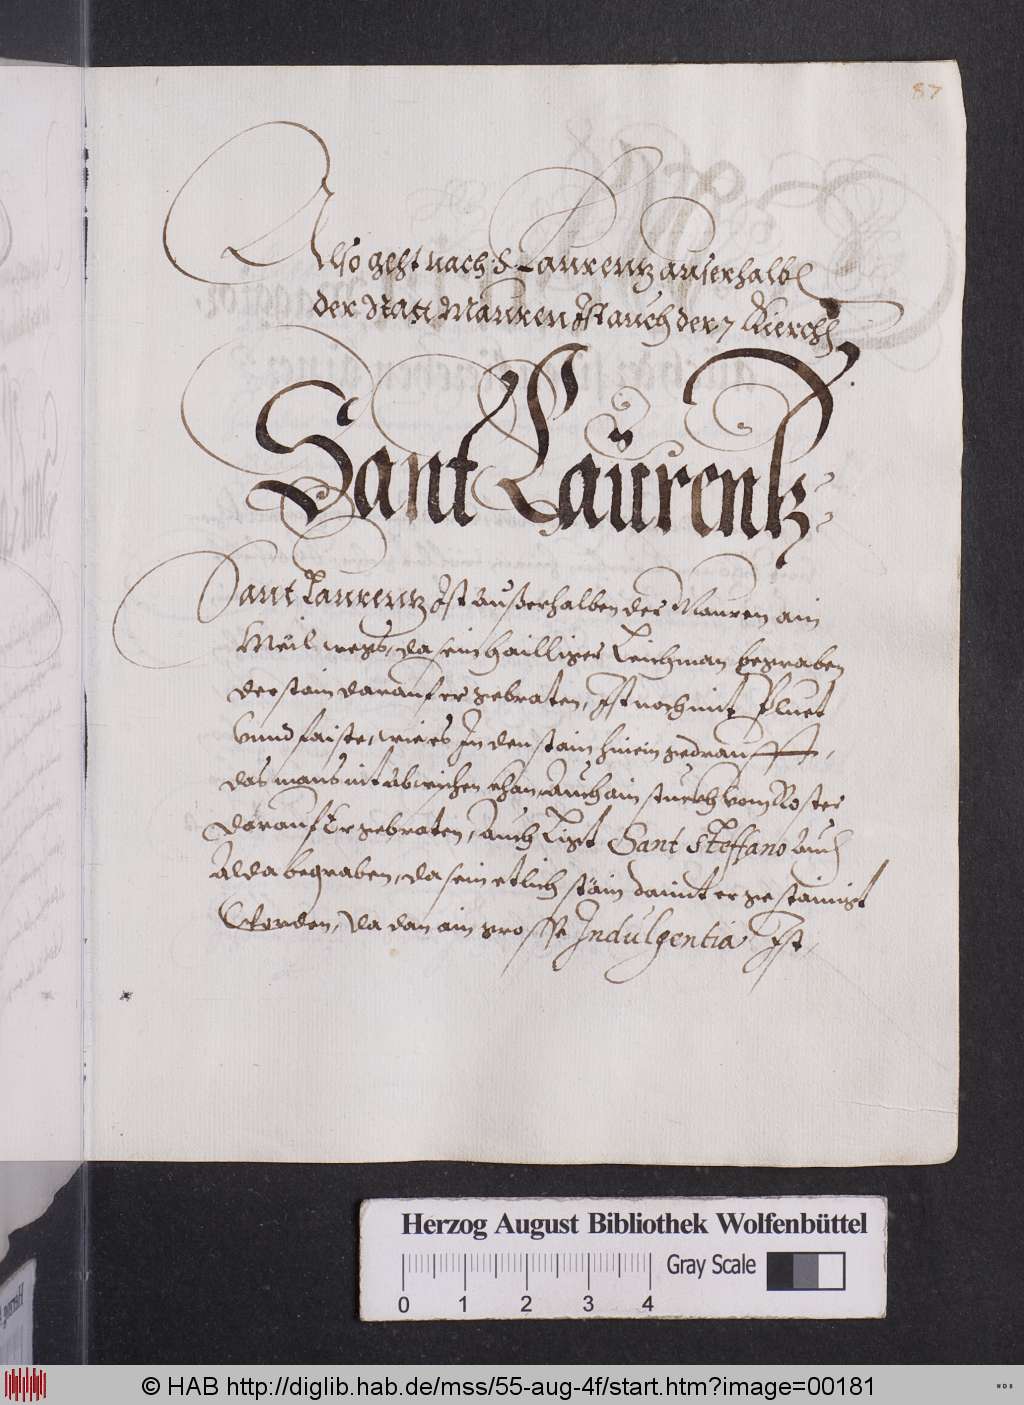 87
Also geht nach S Laurentz auserhalb
der Statt Mauren Ist auch der 7 Kierch
Sant Laurentz
Sant Laurentz Ist außerhalben der Mauren ain
Meil wegs, da sein hailliger Leichman begraben
der stain darauf er gebraten, Ist noch mit Pluet
vnnd faiste, wie es In den stain hinein gedraufft,
das mans nit abwischen khan, Auch ain stuckh vom Roster
darauf Er gebraten, Auch Ligt Sant Steffano auch
Alda begraben, da sein etlich stain damit er gestainigt
Worden, Da dan ain grosse Indulgentia Ist,
Herzog August Bibliothek Wolfenbüttel
Gray Scale
0 1 2 3 4
© HAB http://diglib.hab.de/mss/55-aug-4f/start.htm?image=00181